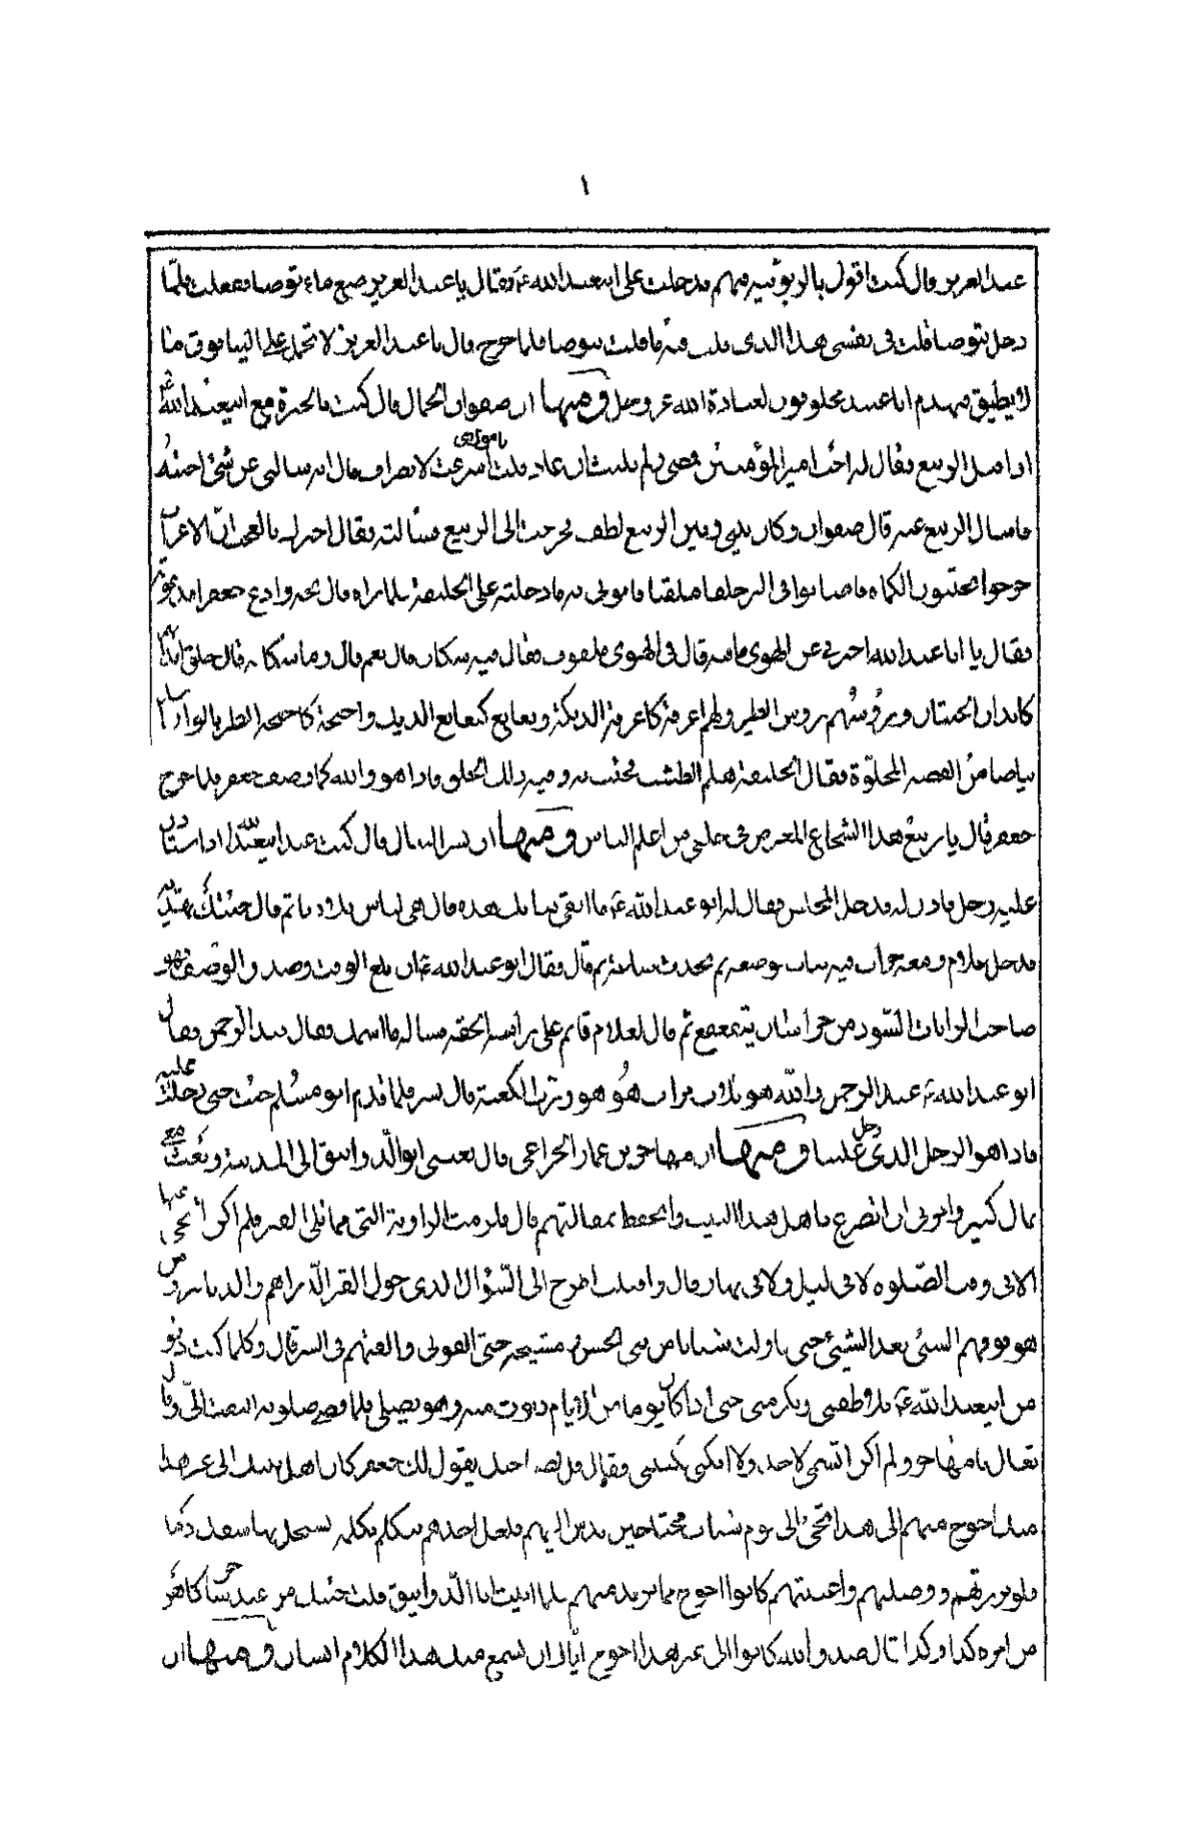 ١
عبد العزيز قال كنت اقول بالربوبية فيهم فدخلت على ابيعبد الله ع فقال يا عبد العزيز ضع ماء نتوضا ففعلت فلمّا
دخل نتوضا قلت في نفسي هذا الذي قلت فيه ما قلت يتوضا فلما خرج قال يا عبد العزيز لا تحمل على البنا فوق ما
لا يطيق فيهدم انا عبيد مخلوقون لعبادة الله عز وجل ومنها ان صفوان الجمال قال كنت بالحيرة مع ابيعبد الله
اذ اقبل الربيع فقال له اجب امير المؤمنين فمضى فلم يلبث ان عاد قلت يا مولاى اسرعت الانصراف قال انه سالني عن شئ
فاسال الربيع عنه قال صفوان وكان بيني وبين الربيع لطف فخرجت الى الربيع فسألته فقال اخبرك بالعجب انّ الاعراب
خرجوا يجتنون الكماه فاصابوا في البر خلقا ملقا فاتوني به فادخلته على الخليفة فلما راه قال نحه وادع جعفرا فدعوته
فقال يا ابا عبد الله اخبرني عن الهوى ما فيه قال في الهوى موج مكفوف فقال فيه سكان قال نعم قال وما سكانه قال خلق
ابدانهم كابدان الحيتان ورؤسهم رؤس الطير ولهم اعرفة كاعرفة الديكة ونغانغ كنغانغ الديك واجنحة كاجنحة الطير بالوان
بياضا من الفضه المجلوّة فقال الخليفة هلم الطشت فجئت به وفيه ذلك الخلق فاذا هو والله كما وصف جعفر فلما خرج
جعفر قال يا ربيع هذا الشجا المعترض في حلقي من اعلم الناس ومنها ان بشر النبال قال كنت عند ابيعبد الله اذ استاذن
عليه رجل فاذن له فدخل فجلس فقال له ابو عبد الله ع ما انقى ثيابك هذه قال هي لباس بلادنا ثم قال جئتك بهدية
فدخل غلام ومعه جراب فيه ثياب فوضعه ثم تحدث ساعة ثم قام فقال ابو عبد الله ع ان بلغ الوقت وصدق الوصف فهو
صاحب الرايات السّود من خراسان يتقعقع ثم قال لغلام قائم على راسه الحقه فساله ما اسمك فقال عبد الرحمن فقال
ابو عبد الله ع عبد الرحمن والله هو ثلاث مرات هو هو ورب الكعبة قال بشر فلما قدم ابو مسلم جئت حتى دخلت عليه
فاذا هو الرجل الذي دخل علينا ومنها ان مهاجر بن عمار الخزاعي قال بعثني ابو الدّوانيق الى المدينة وبعث معي
بمال كثير وامرني ان اتضرع لاهل هذا البيت واتحفظ مقالتهم قال فلزمت الزاوية التي مما يلي القبر فلم اكن اتنحى منها
الا في وقت الصّلوه لا في ليل ولا في نهار قال واقبلت اطرح الى السّؤال الذي حول القبر الدّراهم والدنانير ومن
هو فوقهم الشئ بعد الشئ حتى ناولت شبابا من بني الحسن ومشيخه حتى الفوني والفتهم في السر قال وكلما كنت دنوت
من ابيعبد الله ع يلاطفني ويكرمني حتى اذا كان يوما من الايام دنوت منه وهو يصلي فلما قضى صلوته التفت اليّ وقال
تعال يا مهاجر ولم اكن اتسمى لاحد ولا اتكنى بكنيتي فقال قل لصاحبك يقول لك جعفر كان اهل بيتك الى غير هذا
منك احوج منهم الى هذا تجئ الى قوم شباب محتاجين فتدس اليهم فلعل احدهم يتكلم بكلمة تستحل بها سفك دمه
فلو بررتهم ووصلتهم واغنيتهم كانوا احوج مما تريد منهم فلما اتيت ابا الدّوانيق قلت جئتك من عند ساحر كاهن
من امره كذا وكذا قال صدق والله كانوا الى غير هذا احوج اياك ان يسمع منك هذا الكلام انسان ومنها ان